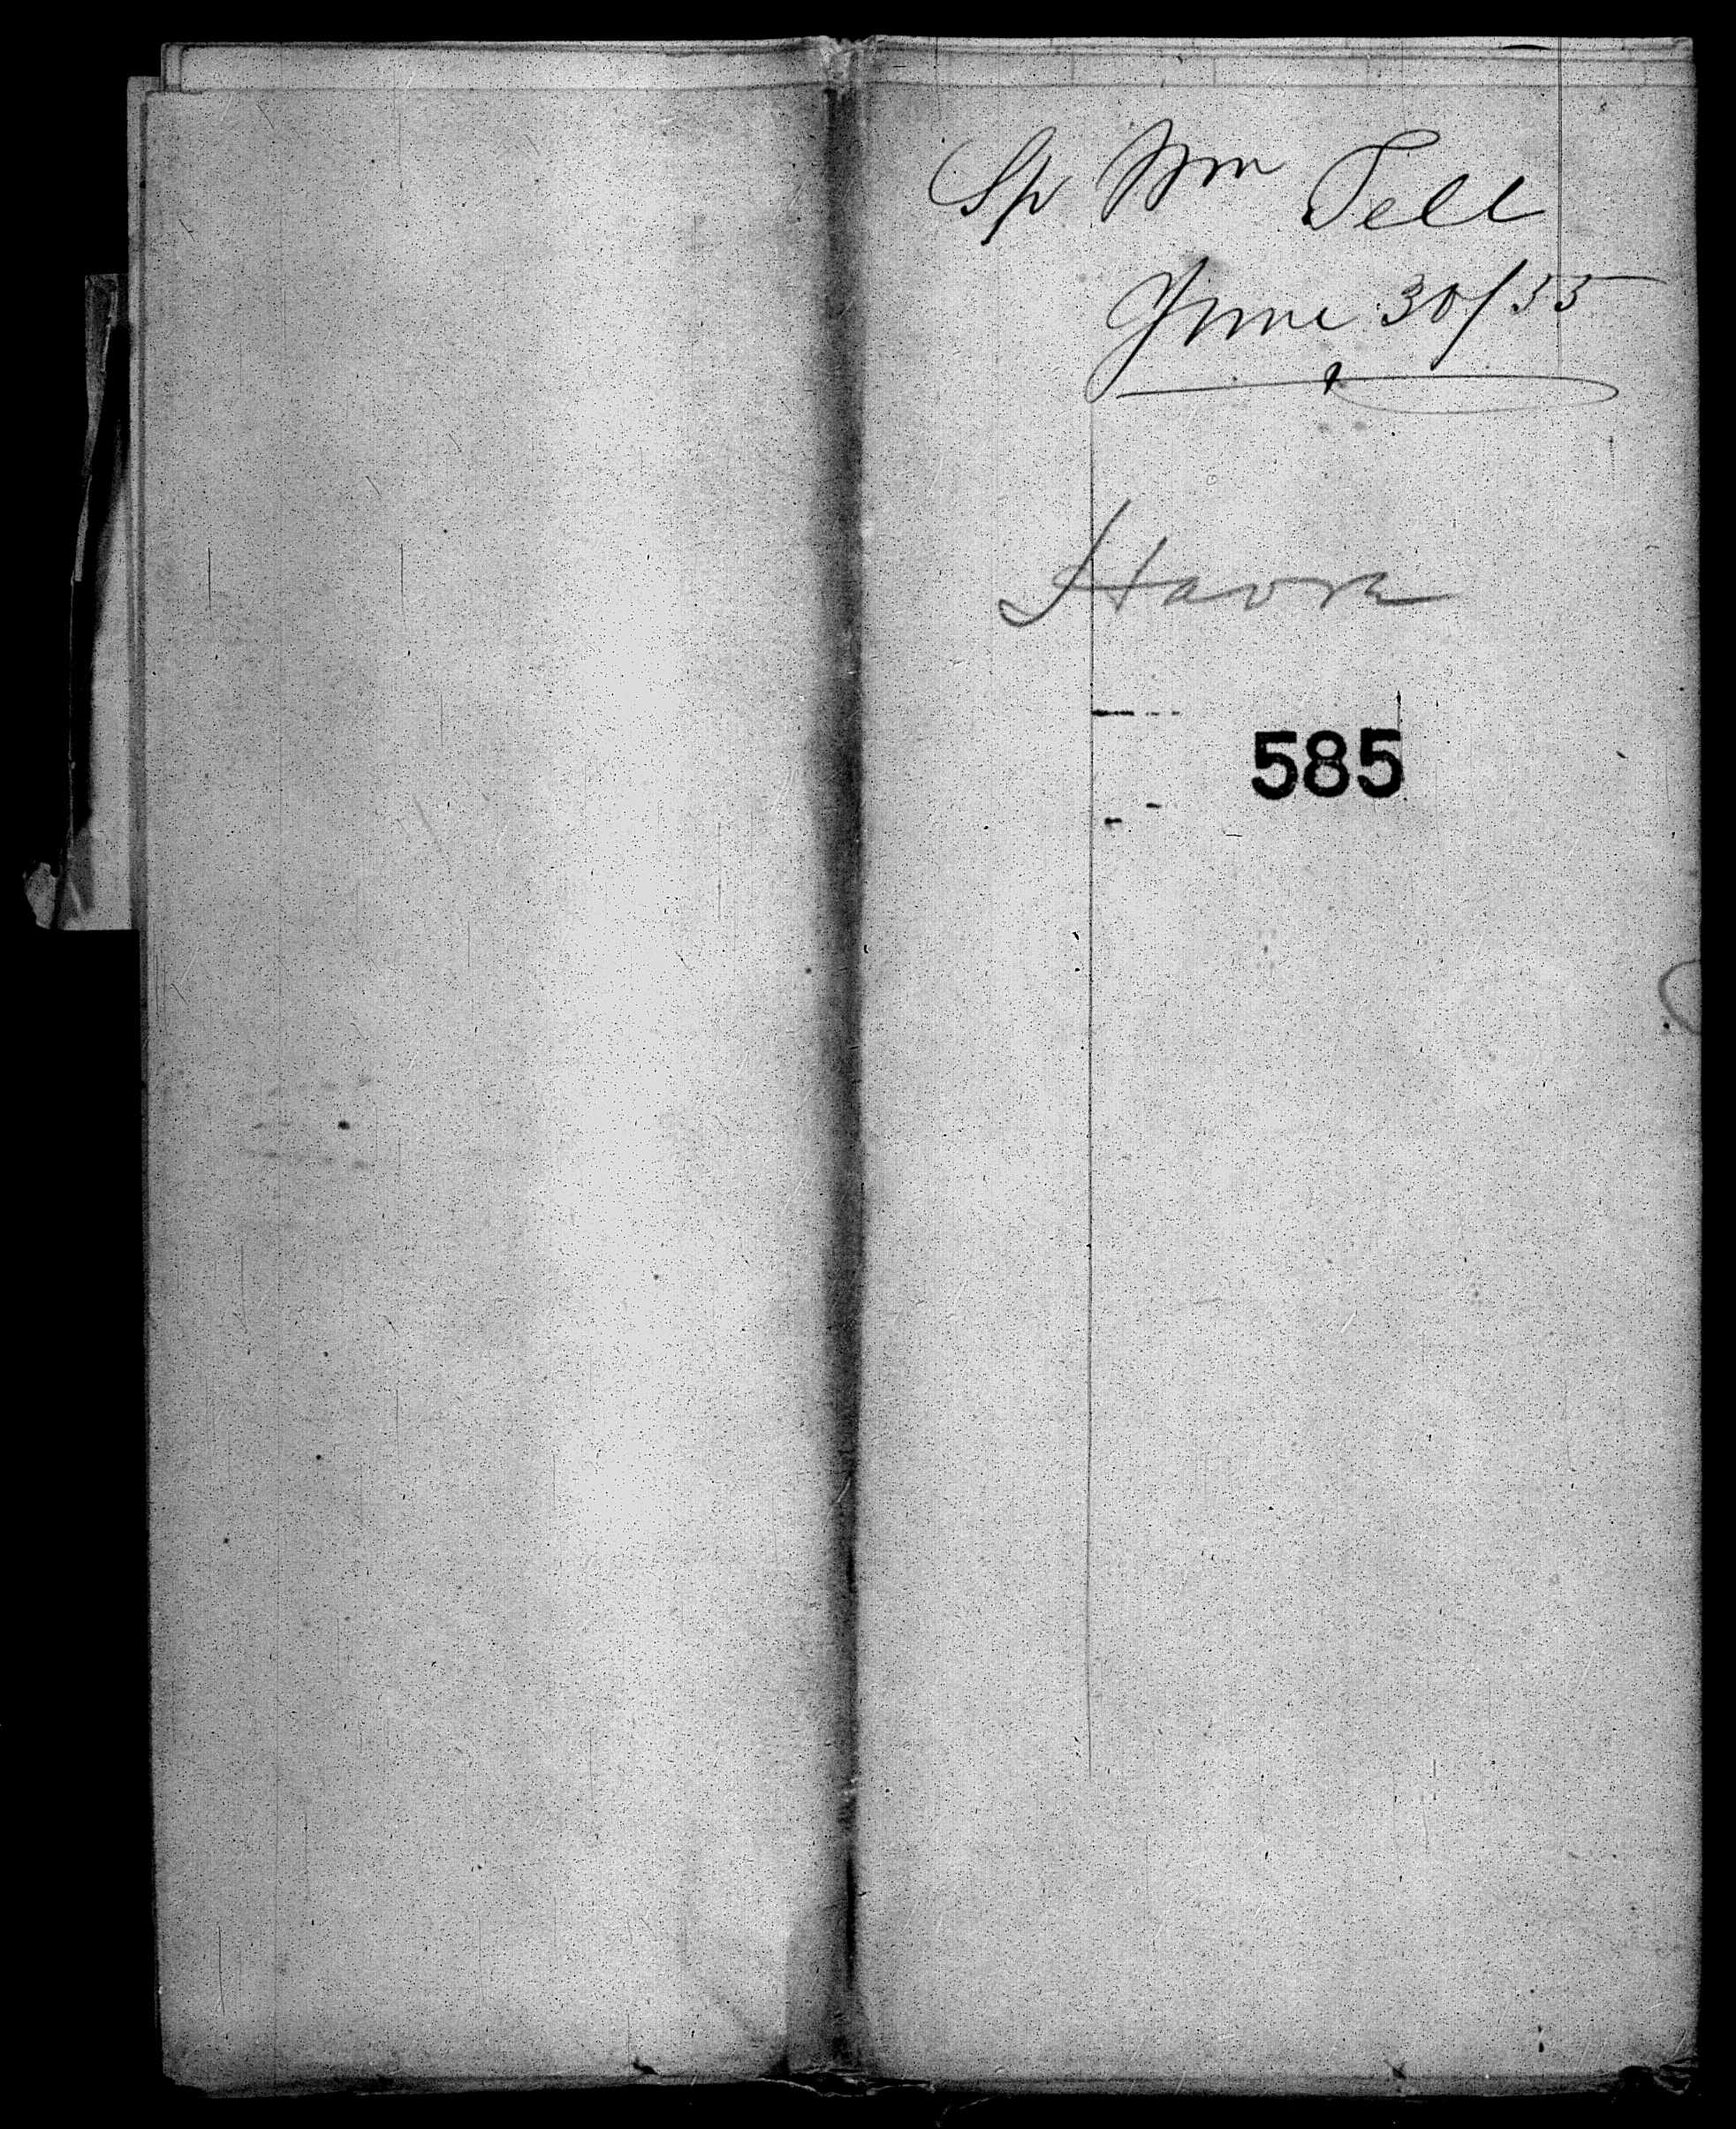 Sp Wm Tell
June 30/55
Havre
585